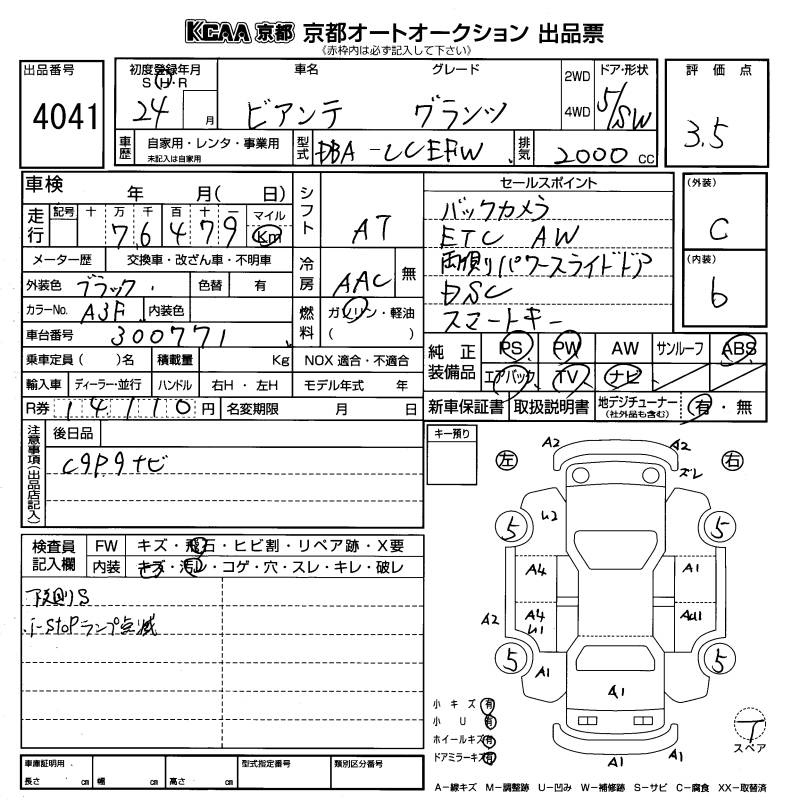 KCAA 京都 京都オートオークション 出品票
《赤枠内は必ず記入して下さい》
出品番号
4041
初度登録年月
S・H・R
24 月
車名
ビアンテ
グレード
グランツ
2WD
4WD
ドア・形状
5/SW
評価点
3.5
車歴
自家用・レンタ・事業用
未記入は自家用
型式
DBA-CCEFW
排気
2000 CC
車検 年 月( 日)
走行
記号 十 万 千 百 十 一 マイル
7 6 4 7 9 Km
メーター歴 交換車・改ざん車・不明車
外装色 ブラック 色替 有
カラーNo. A3F 内装色
車台番号 300771
乗車定員( )名 積載量 Kg
NOX 適合・不適合
輸入車 ディーラー・並行 ハンドル 右H・左H モデル年式 年
R券 14110円 名変期限 月 日
シフト AT
冷房 AAC 無
燃料 ガソリン・軽油
( )
セールスポイント
バックカメラ
ETC AW
両側りパワースライドドア
DSC
スマートキー
(外装)
C
(内装)
b
純正装備品
PS PW AW サンルーフ ABS
エアバック TV ナビ
新車保証書 取扱説明書 地デジチューナー
(社外品も含む)
有・無
注意事項(出品店記入)
後日品
C9P9ナビ
キー預り
左
右
A2
A2
ズレ
5
U2
5
A4
A1
A2
A4
U1
AU1
5
A1
5
A1
A1
A1
検査員記入欄
FW キズ・飛石・ヒビ割・リペア跡・X要
内装 キズ・汚れ・コゲ・穴・スレ・キレ・破レ
下廻りS
i-stopランプ点滅
小キズ 有
小U 有
ホイールキズ 有
ドアミラーキズ 有
T
スペア
車庫証明用
長さ cm 幅 cm 高さ cm
型式指定番号
類別区分番号
A−線キズ M−調整跡 U−凹み W−補修跡 S−サビ C−腐食 XX−取替済